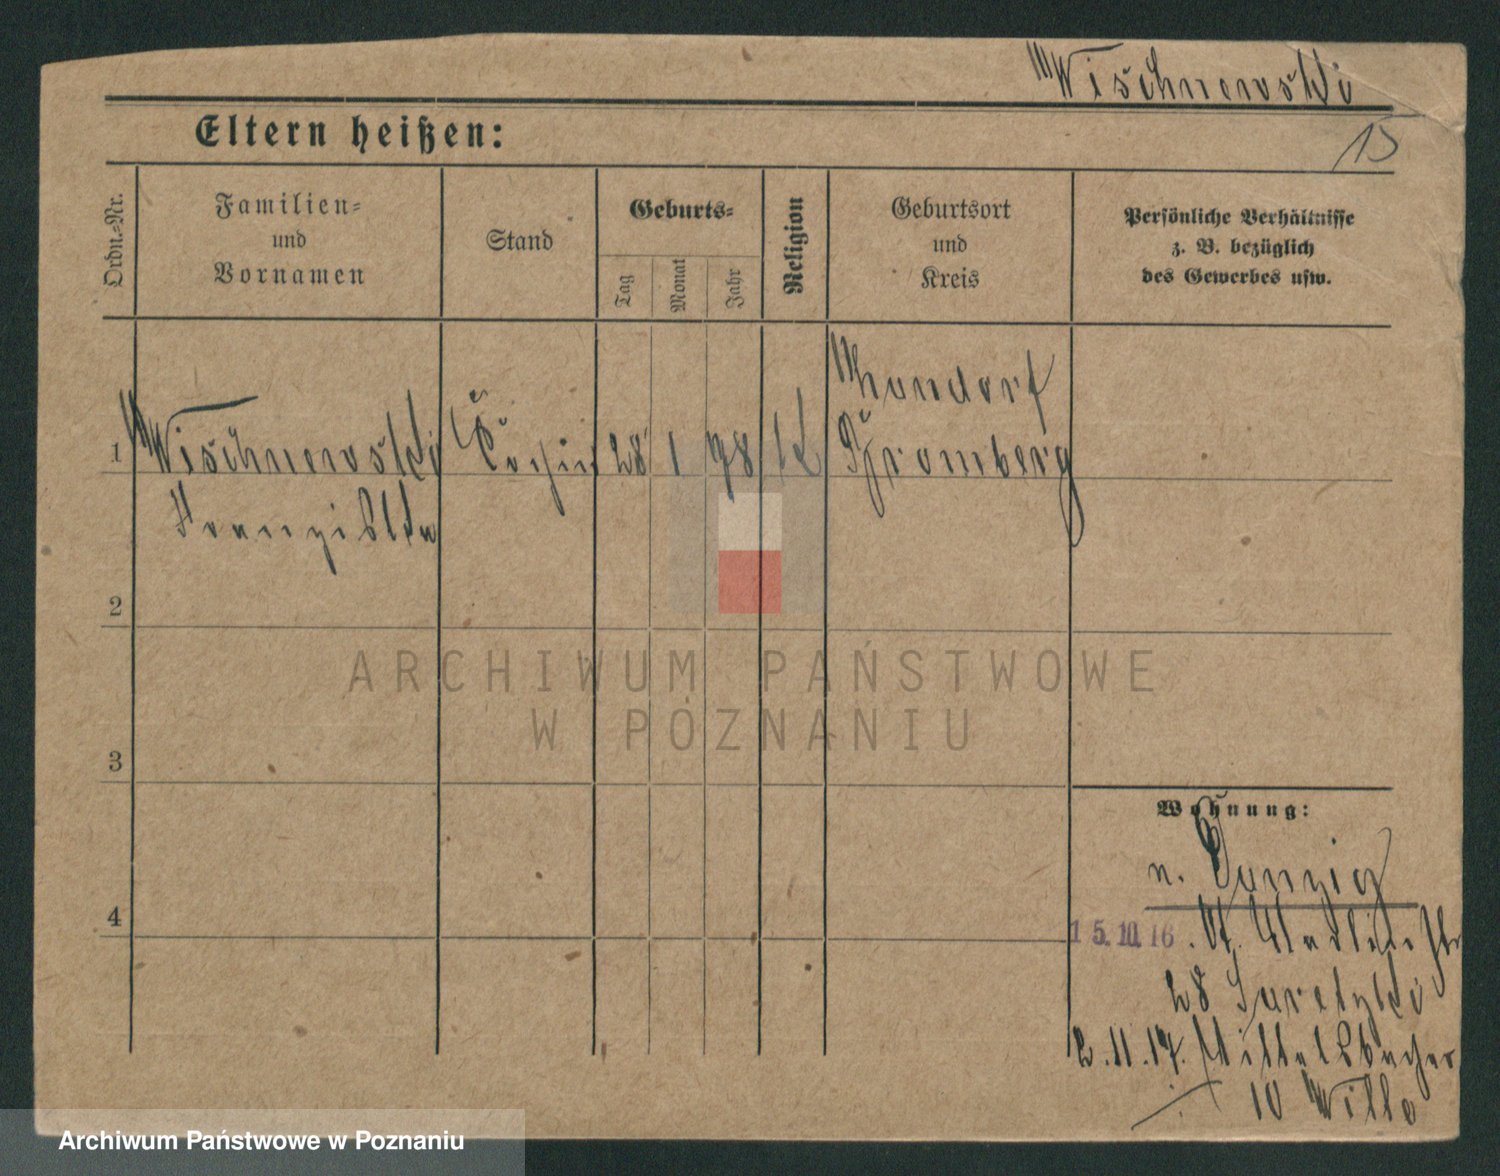 Wischnewski
15
Eltern heißen:
Ordn.-Nr.
Familien-
und
Vornamen
Stand
Geburts-
Tag
Monat
Jahr
Religion
Geburtsort
und
Kreis
Persönliche Verhältnisse
z. B. bezüglich
des Gewerbes usw.
1
Wischnewski
Franziska
Köchin
28
1
98
K
Bromberg
2
3
4
Wohnung:
n. Danzig
15.10.16. St. Martin Str
28
2.11.17.
10 Wille
ARCHIWUM PAŃSTWOWE
W POZNANIU
Archiwum Państwowe w Poznaniu